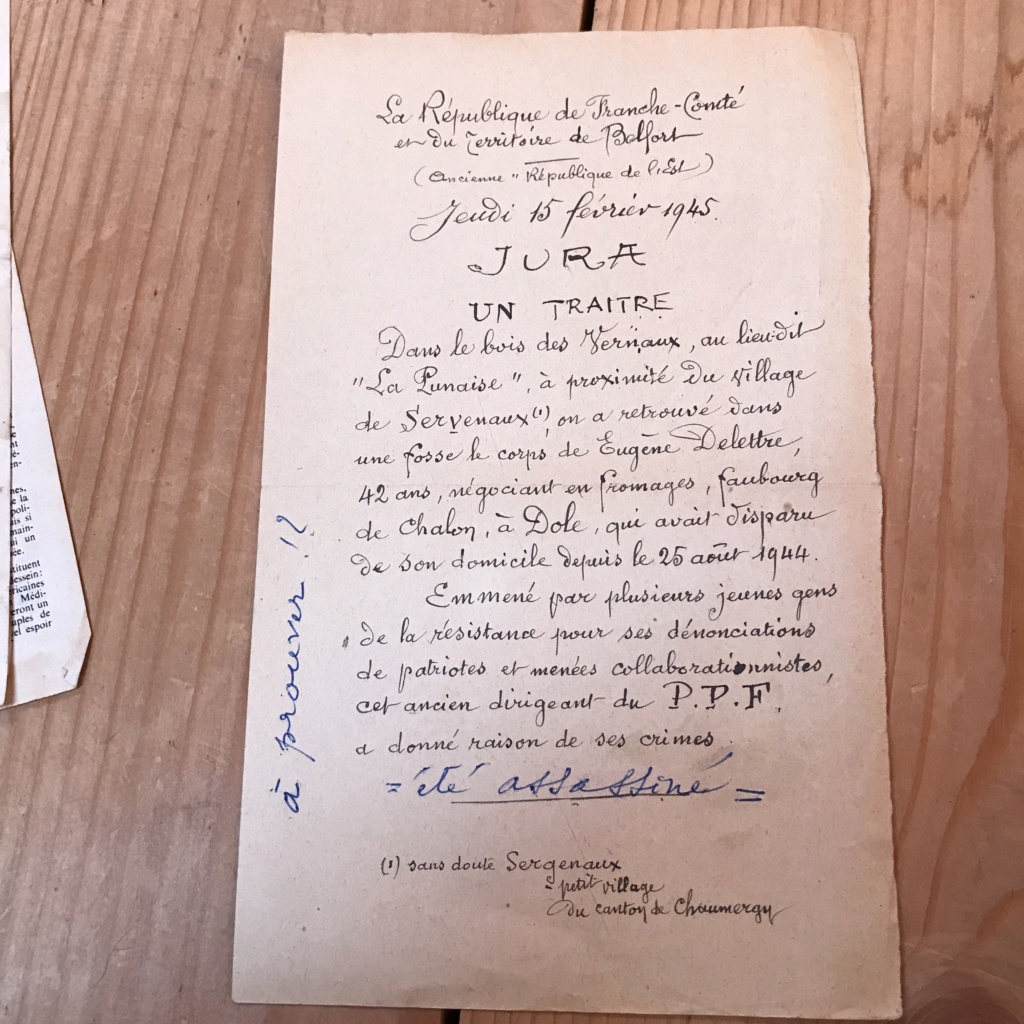 La République de Franche-Comté
et du Territoire de Belfort
(Ancienne "République de l'Est)
Jeudi 15 février 1945.
JURA
UN TRAITRE
Dans le bois des Vernaux, au lieu-dit
"La Punaise", à proximité du village
de Servenaux(1) on a retrouvé dans
une fosse le corps de Eugène Delettre,
42 ans, négociant en fromages, faubourg
de Chalon, à Dole, qui avait disparu
de son domicile depuis le 25 août 1944.
Emmené par plusieurs jeunes gens
de la résistance pour ses dénonciations
de patriotes et menées collaborationnistes,
cet ancien dirigeant du P.P.F.
a donné raison de ses crimes
= été assassiné =
à prouver !?
(1) sans doute Sergenaux
= petit village
du canton de Chaumergy
nt
é-
en-
nes,
e la
poli-
is si
main-
i un
ée.
tituent
dessein:
ricaines
Médi-
eront un
uples de
el espoir